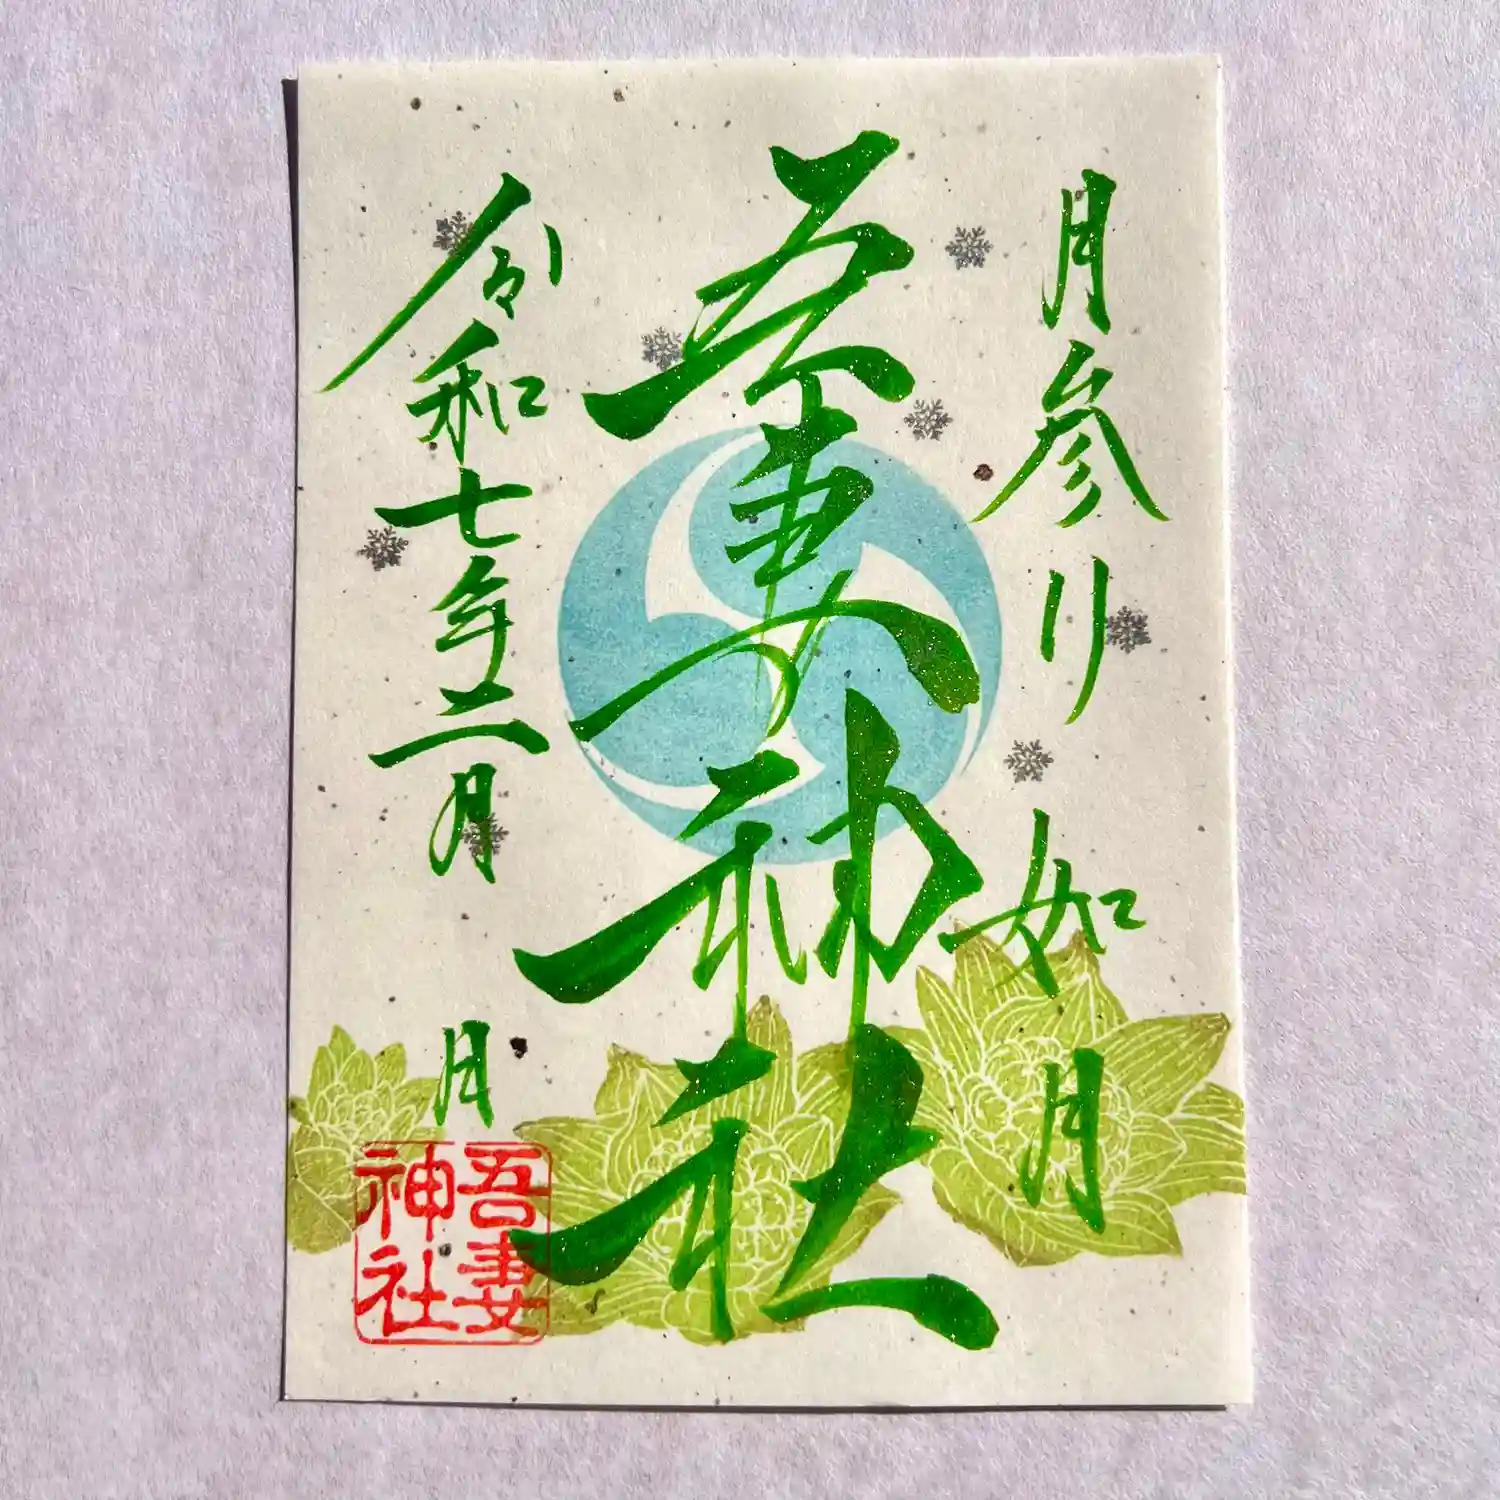 月参り 如月
吾妻神社
令和七年二月 日
吾妻
神社